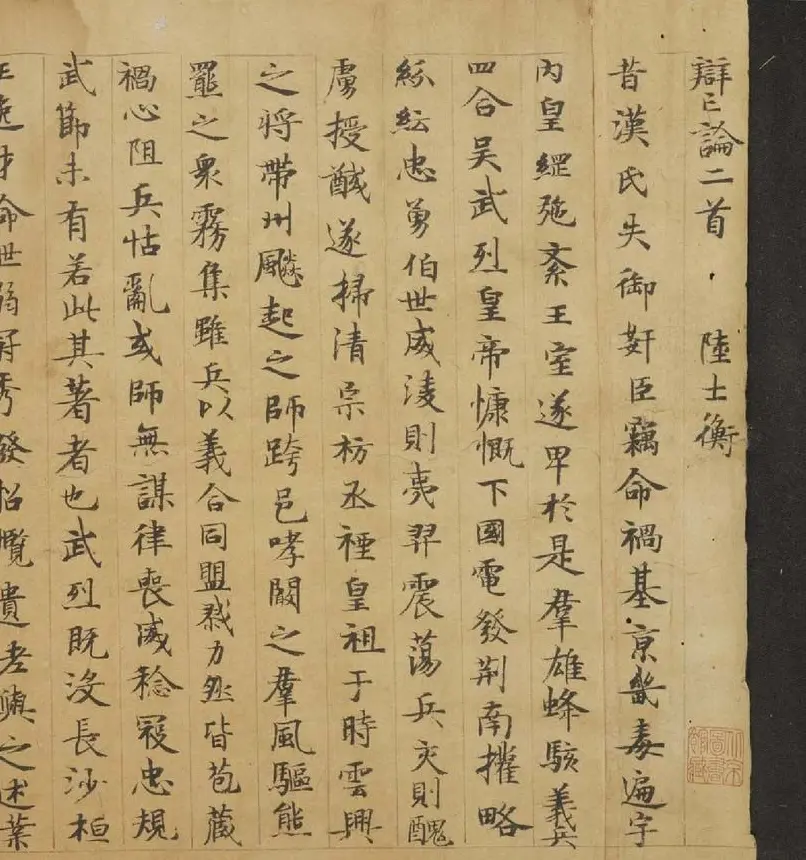 辯亡論二首 陸士衡
昔漢氏失御奸臣竊命禍基京畿毒遍宇
內皇綱弛紊王室遂卑於是羣雄蜂駭義兵
四合吳武烈皇帝慷慨下國電發荊南擁略
紛紜忠勇伯世威淩則夷羿震蕩兵交則醜
虜授馘遂掃清宗祊丞禋皇祖于時雲興
之將帶州飈起之師跨邑哮闞之羣風驅熊
羆之衆霧集雖兵以義合同盟戮力然皆苞藏
禍心阻兵怙亂或師無謀律喪威稔寇忠規
武節未有若此其著者也武烈既沒長沙桓
王逸才命世弱冠秀發招攬遺老與之述業